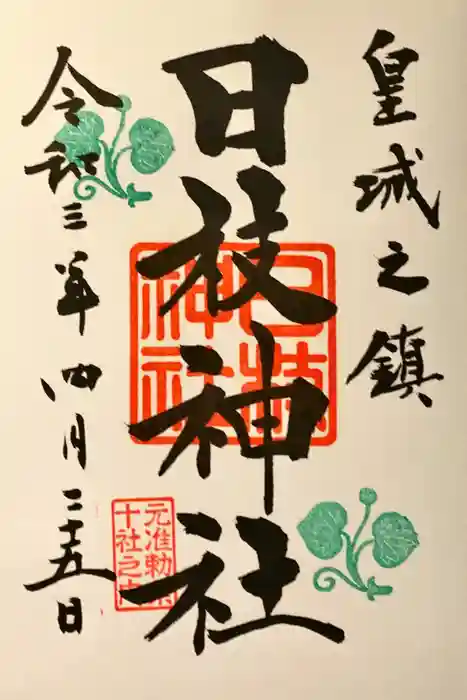 皇城之鎮
日枝神社
令和三年四月二十五日
日枝
神社
元准勅祭
十社之内